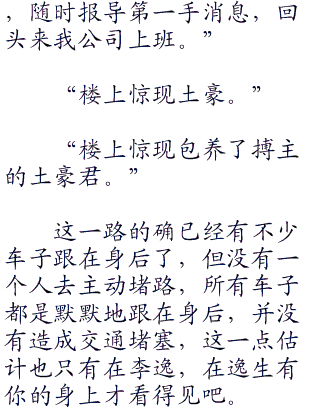 ，随时报导第一手消息，回
头来我公司上班。”
“楼上惊现土豪。”
“楼上惊现包养了搏主
的土豪君。”
这一路的确已经有不少
车子跟在身后了，但没有一
个人去主动堵路，所有车子
都是默默地跟在身后，并没
有造成交通堵塞，这一点估
计也只有在李逸，在逸生有
你的身上才看得见吧。